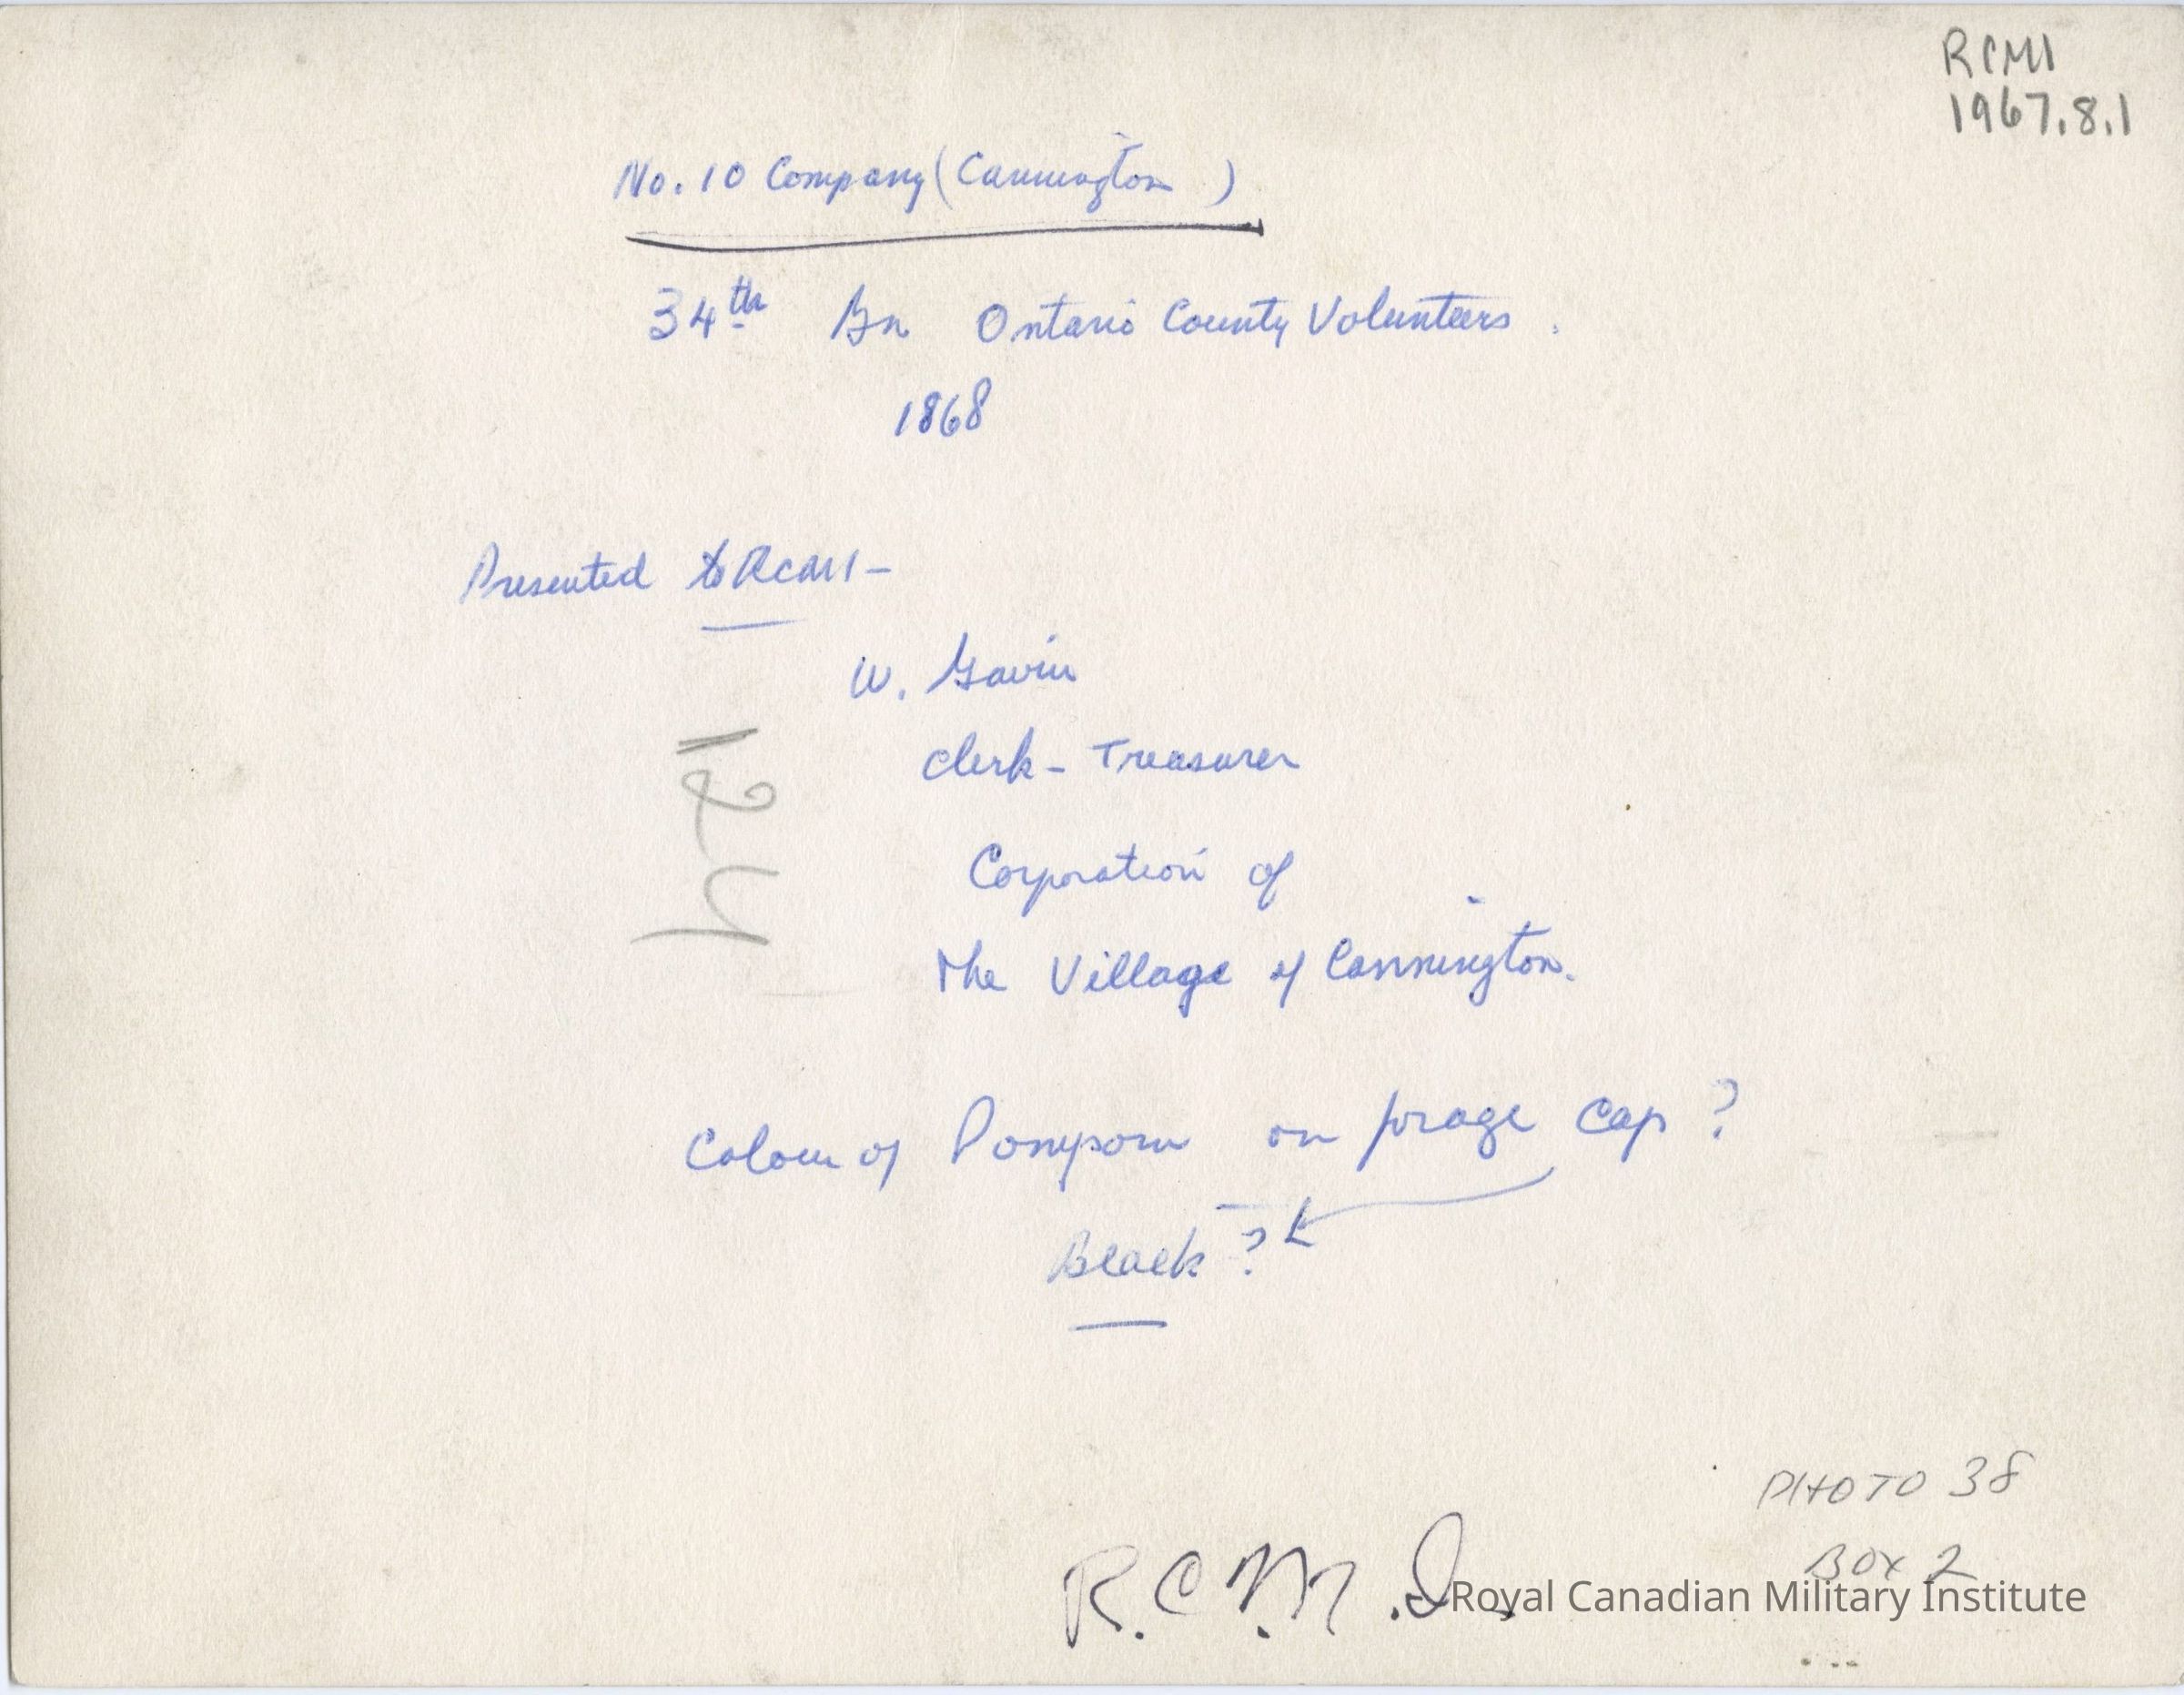 RCMI
1967.8.1
No. 10 Company (Cannington)
34th Bn Ontario County Volunteers.
1868
Presented to RCMI -
W. Gavin
Clerk - Treasurer
Corporation of
the Village of Cannington.
124
Colour of Pompom on forage cap ?
Black ?
PHOTO 38
BOX 2
R.C.M.I.
Royal Canadian Military Institute